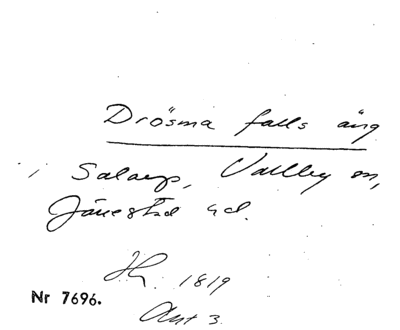 Drösma falls äng
i Salarp, Vallby sn,
Järrestad hd.
1819
Nr 7696.
Akt 3.